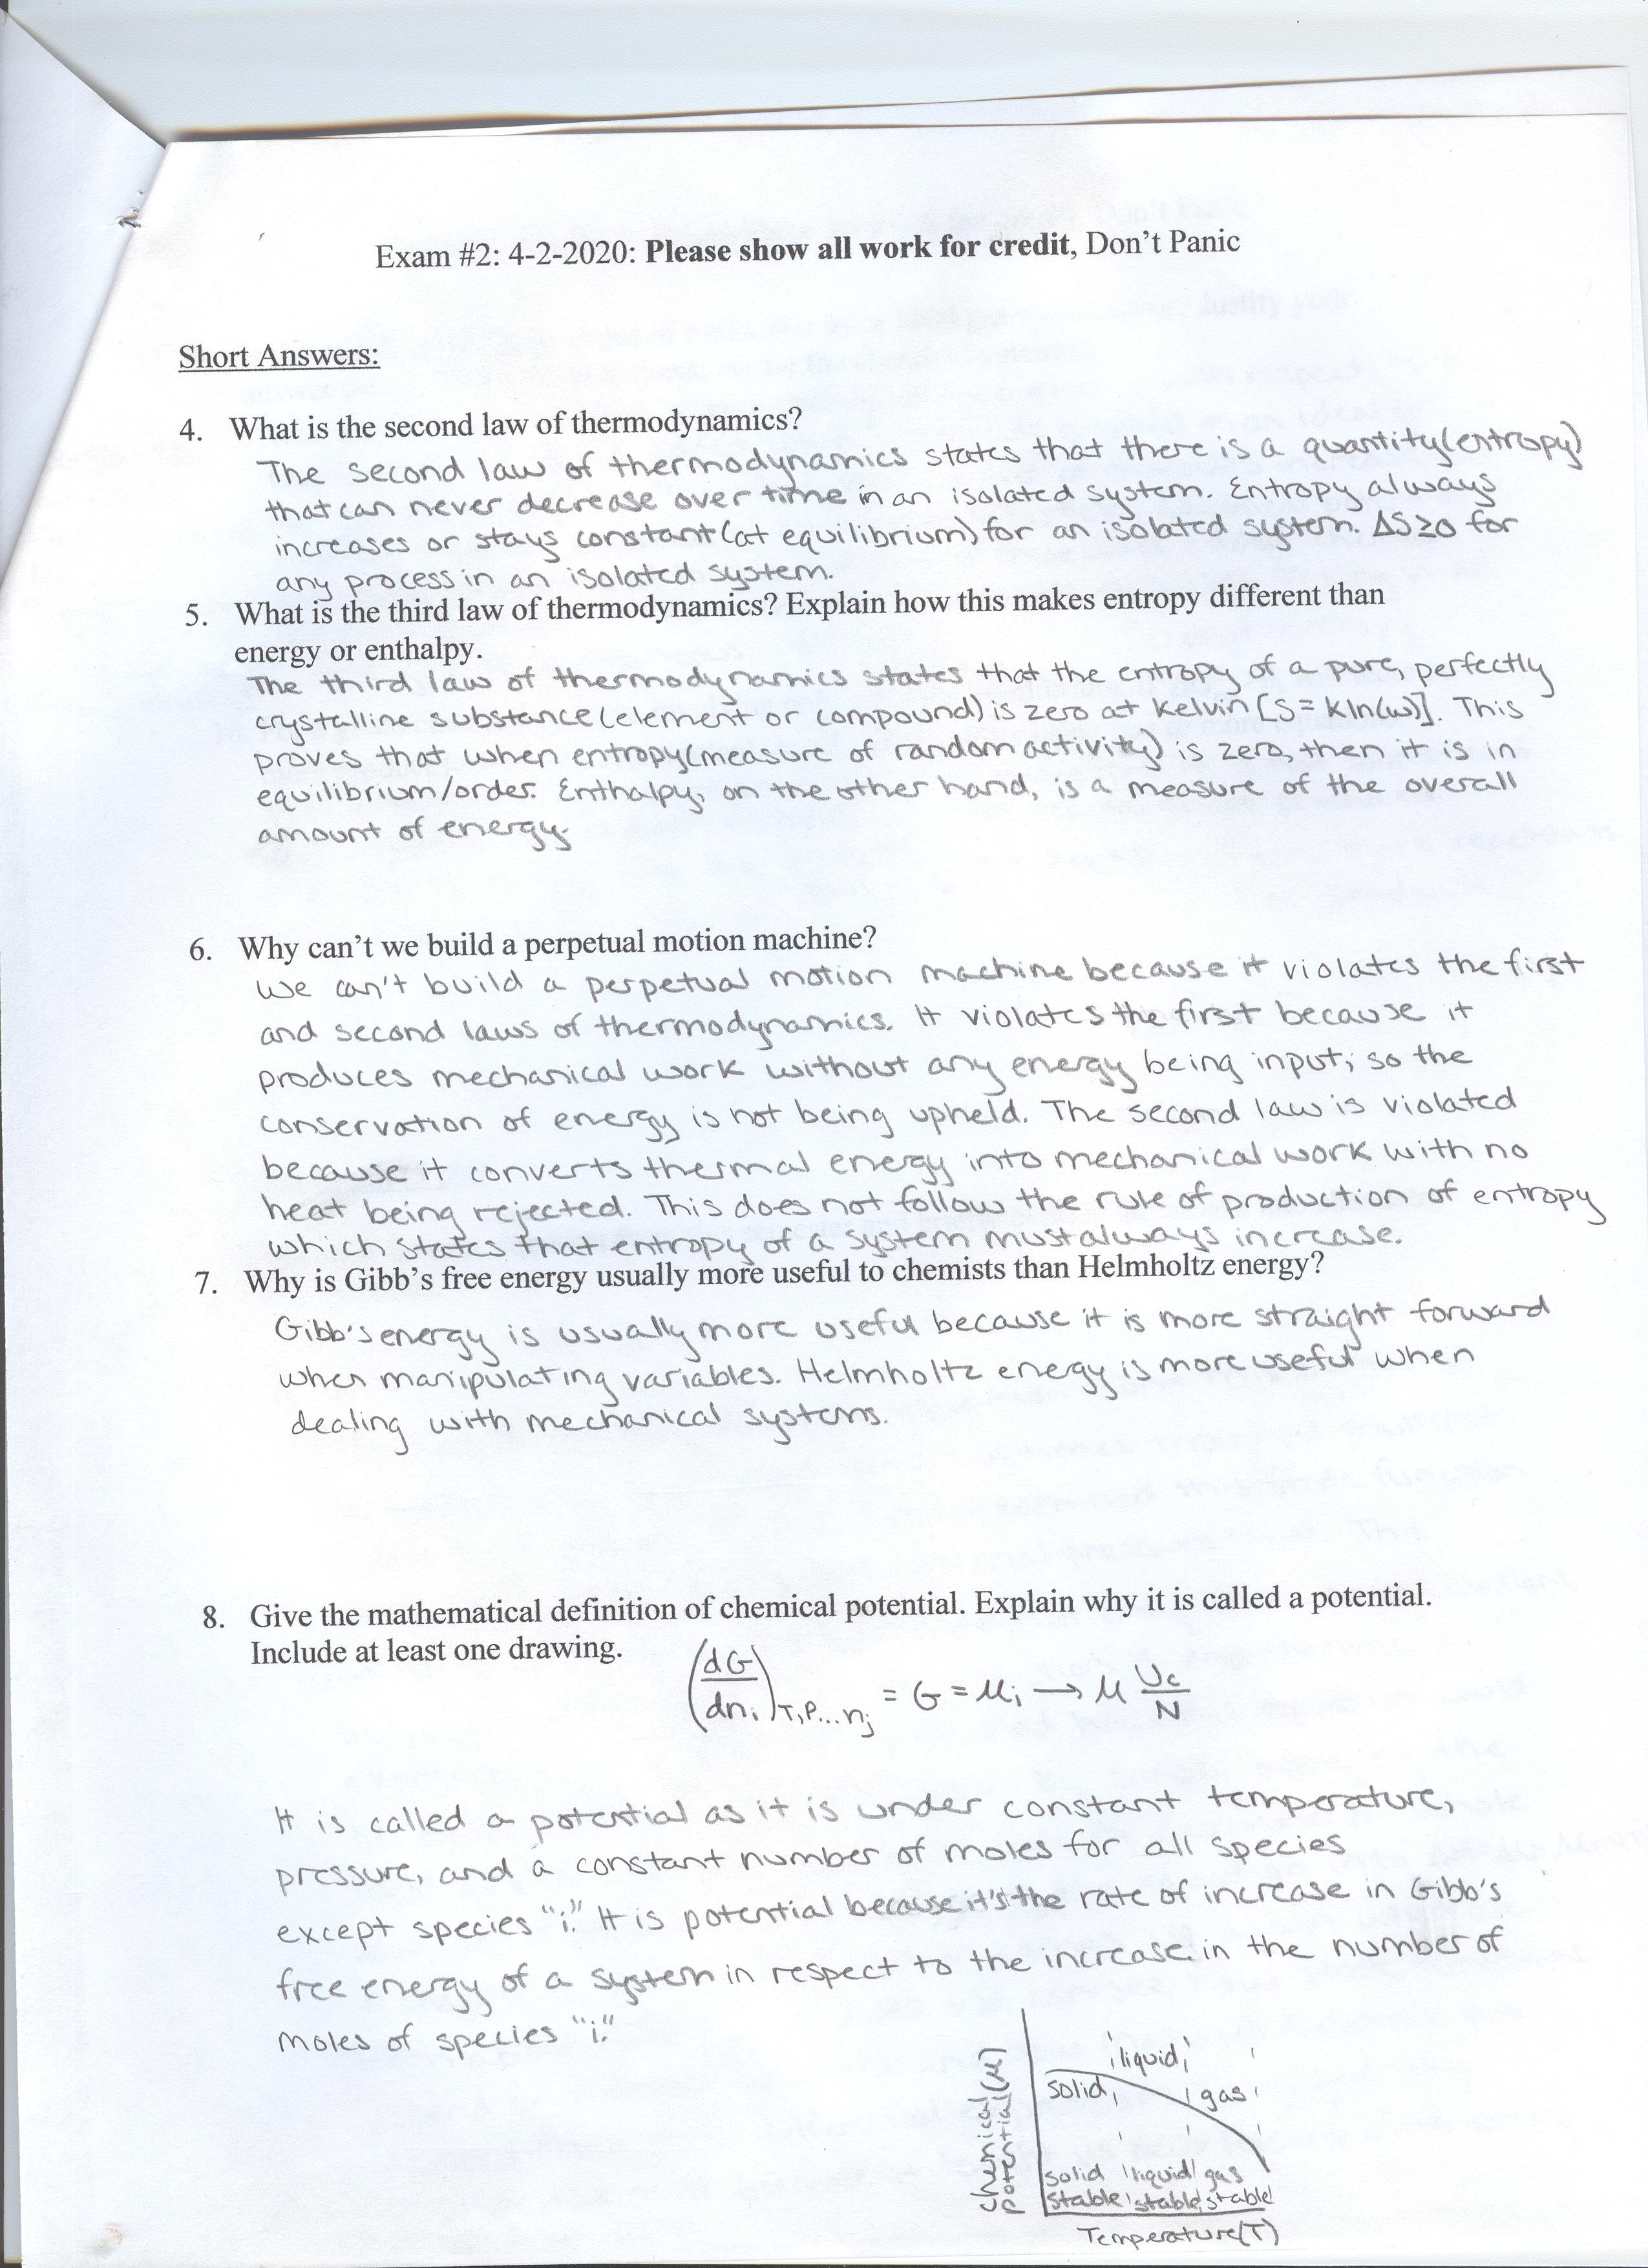 Exam #2: 4-2-2020: Please show all work for credit, Don't Panic
Short Answers:
4. What is the second law of thermodynamics?
The second law of thermodynamics states that there is a quantity (entropy)
that can never decrease over time in an isolated system. Entropy always
increases or stays constant (at equilibrium) for an isolated system. ΔS≥0 for
any process in an isolated system.
5. What is the third law of thermodynamics? Explain how this makes entropy different than
energy or enthalpy.
The third law of thermodynamics states that the entropy of a pure, perfectly
crystalline substance (element or compound) is zero at Kelvin [S = kln(w)]. This
proves that when entropy (measure of random activity) is zero, then it is in
equilibrium/order. Enthalpy, on the other hand, is a measure of the overall
amount of energy.
6. Why can't we build a perpetual motion machine?
We can't build a perpetual motion machine because it violates the first
and second laws of thermodynamics. It violates the first because it
produces mechanical work without any energy being input; so the
conservation of energy is not being upheld. The second law is violated
because it converts thermal energy into mechanical work with no
heat being rejected. This does not follow the rule of production of entropy
which states that entropy of a system must always increase.
7. Why is Gibb's free energy usually more useful to chemists than Helmholtz energy?
Gibb's energy is usually more useful because it is more straight forward
when manipulating variables. Helmholtz energy is more useful when
dealing with mechanical systems.
8. Give the mathematical definition of chemical potential. Explain why it is called a potential.
Include at least one drawing.
(dG/dni)T,P...nj = G = μi → μ Uc/N
It is called a potential as it is under constant temperature,
pressure, and a constant number of moles for all species
except species "i." It is potential because it's the rate of increase in Gibb's
free energy of a system in respect to the increase in the number of
moles of species "i."
chemical
potential (μ)
liquid
solid
gas
solid liquid gas
stable stable stable
Temperature (T)